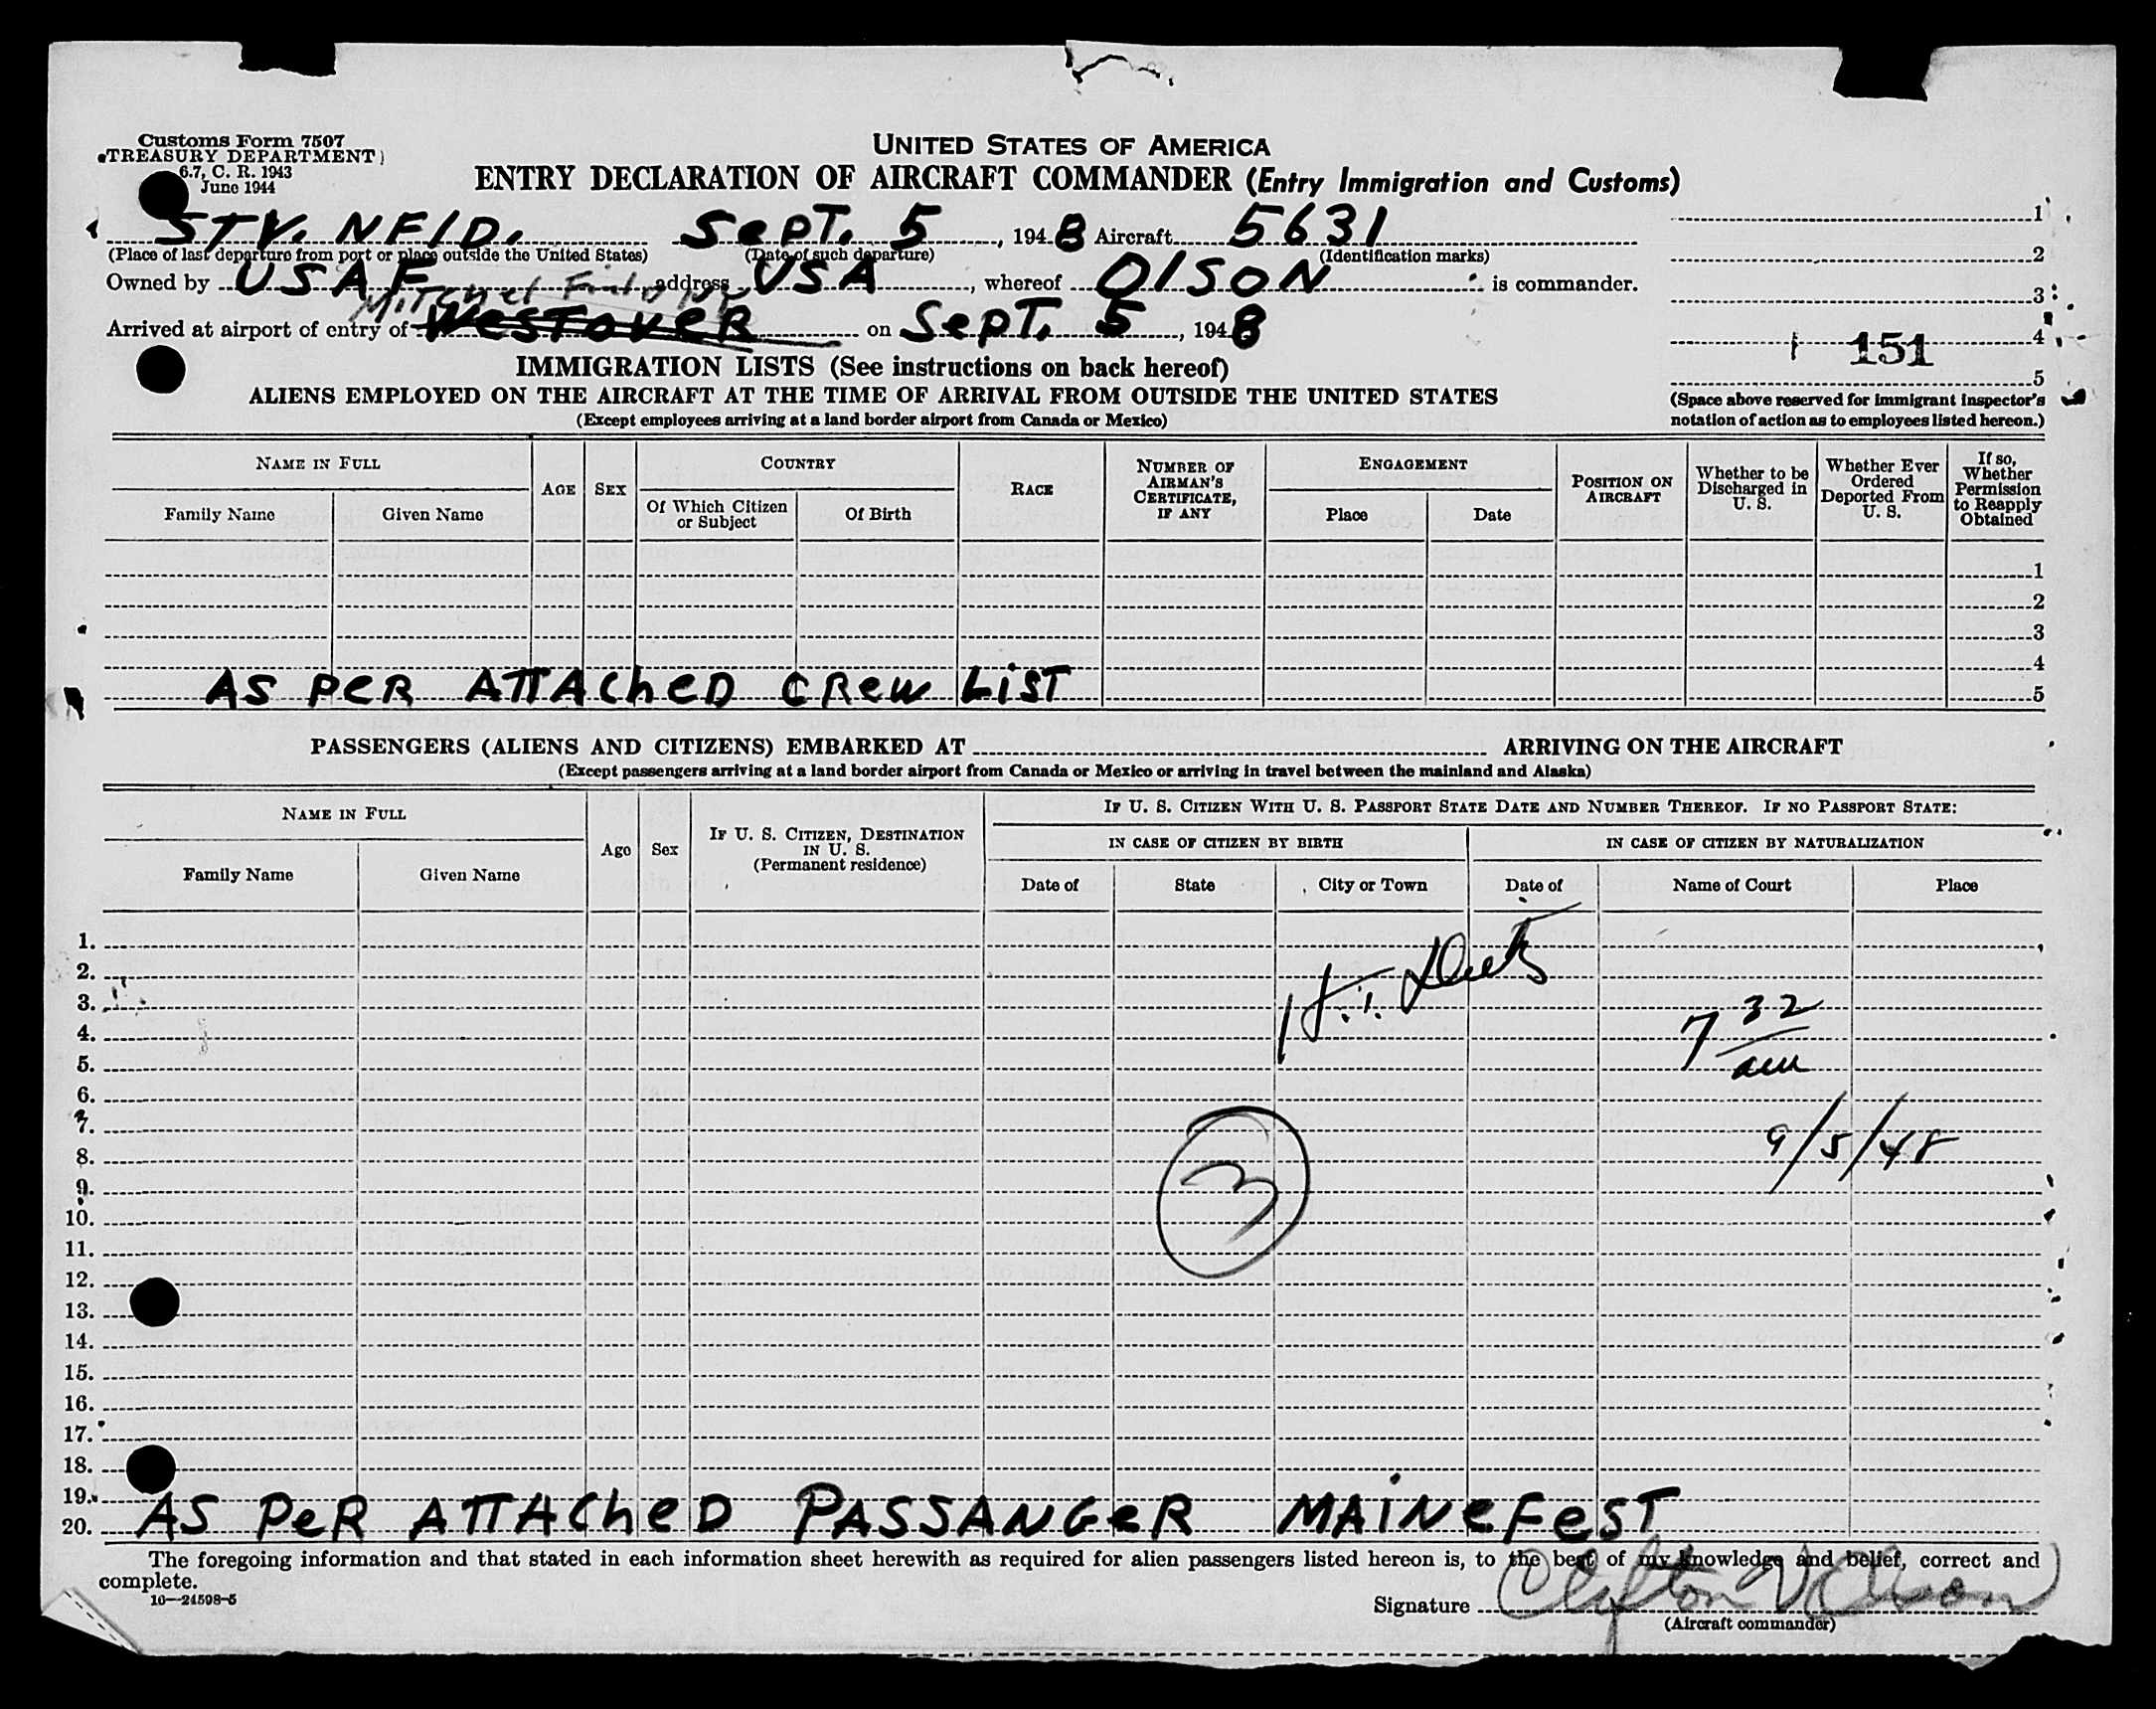 Customs Form 7507
TREASURY DEPARTMENT
6.7, C. R. 1943
June 1944
UNITED STATES OF AMERICA
ENTRY DECLARATION OF AIRCRAFT COMMANDER (Entry Immigration and Customs)
STV. NFlD. Sept. 5, 1948 Aircraft 5631
(Place of last departure from port or place outside the United States) (Date of such departure) (Identification marks)
Owned by USAF address USA, whereof OlSON is commander.
Mitchel Field NY
Arrived at airport of entry of Westover on Sept. 5, 1948
1
2
3
4
151
5
(Space above reserved for Immigrant Inspector's
notation of action as to employees listed hereon.)
IMMIGRATION LISTS (See instructions on back hereof)
ALIENS EMPLOYED ON THE AIRCRAFT AT THE TIME OF ARRIVAL FROM OUTSIDE THE UNITED STATES
(Except employees arriving at a land border airport from Canada or Mexico)
NAME IN FULL
Family Name Given Name
AGE
SEX
COUNTRY
Of Which Citizen or Subject
Of Birth
RACE
NUMBER OF AIRMAN'S CERTIFICATE, IF ANY
ENGAGEMENT
Place Date
POSITION ON AIRCRAFT
Whether to be Discharged in U. S.
Whether Ever Ordered Deported From U. S.
If so, Whether Permission to Reapply Obtained
1
2
3
4
AS PeR ATTAChED CRew LiST 5
PASSENGERS (ALIENS AND CITIZENS) EMBARKED AT ARRIVING ON THE AIRCRAFT
(Except passengers arriving at a land border airport from Canada or Mexico or arriving in travel between the mainland and Alaska)
NAME IN FULL
Family Name Given Name
Age
Sex
IF U. S. CITIZEN, DESTINATION IN U. S.
(Permanent residence)
IF U. S. CITIZEN WITH U. S. PASSPORT STATE DATE AND NUMBER THEREOF. IF NO PASSPORT STATE:
IN CASE OF CITIZEN BY BIRTH IN CASE OF CITIZEN BY NATURALIZATION
Date of State City or Town Date of Name of Court Place
1.
2.
3.
4. 7 32
5. am
6.
7.
8. 9/5/48
9. 3
10.
11.
12.
13.
14.
15.
16.
17.
18.
19.
20. AS PeR ATTAChED PASSANGeR MAiNeFeST
The foregoing information and that stated in each information sheet herewith as required for alien passengers listed hereon is, to the best of my knowledge and belief, correct and
complete.
10—24598-5
Signature Clifton V Olson
(Aircraft commander)